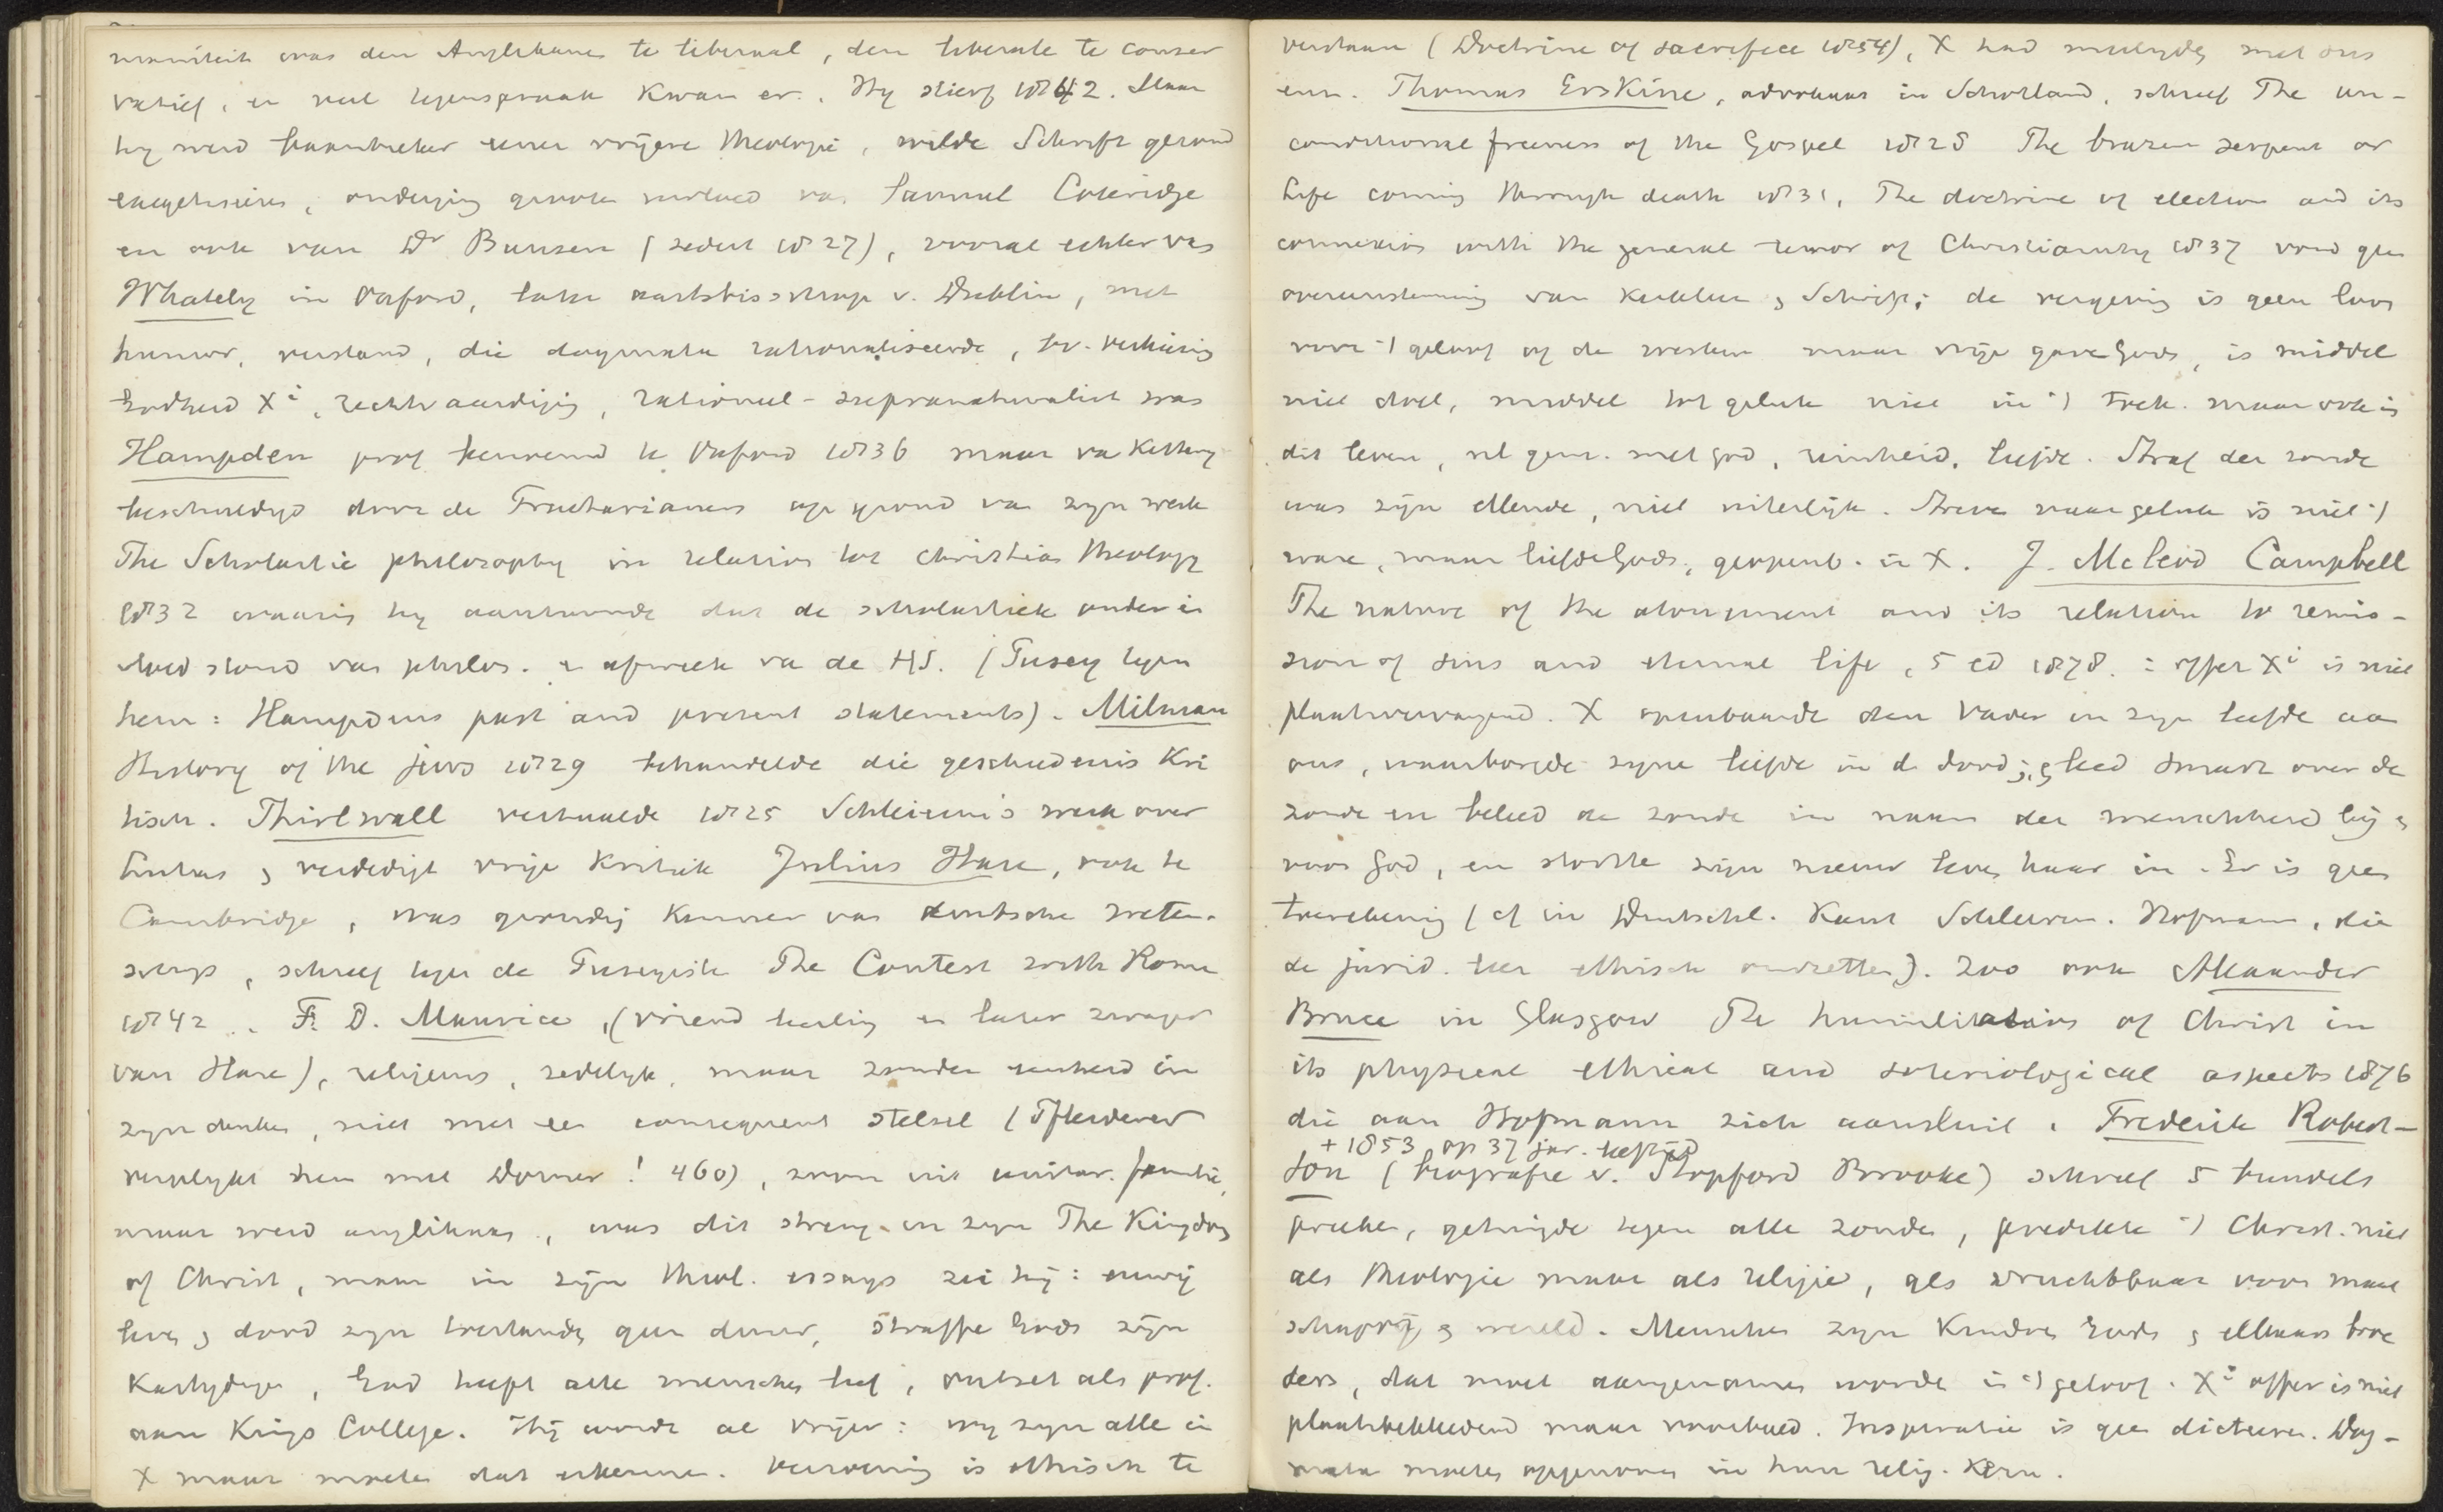 maniteit was den Anglikanen te liberaal, den liberale te conser
vatief, en veel tegenspraak kwam er. Hij stierf 1842. Maar
hij werd baanbreker eener vrijere theologie, wilde Schrift gezond
exegetiseeren, onderging groote invloed van Samuel Coleridge
en ook van Dr Bunsen (sedert 1827), vooral echter van
Whately in Oxford, later aartsbisschop v. Dublin, met
humor, verstand, die dogmata rationaliseerde, bv. verkiezing
Godheid Xi, rechtvaardiging, rationeel-supranaturalist was
Hampden prof benoemd te Oxford 1836 maar van Kettery
beschuldigd door de Tractarianen op grond van zyn werk
The Scholastic philosophy in relation tot Christian theology
1832 waarin hy aantoonde dat de scholastiek onder in
vloed stond van philos. en afweek van de HS. (Pusey tegen
hem: Hampdens past and present statements). Milman
History of the jews 1829 behandelde die geschiedenis Kri
tisch. Thirlwall vertaalde 1825 Schleierm's werk over
Lukas en verdedigt vrije Kritiek Julius Hare, ook te
Cambridge, was grondig kenner van duitsche weten-
schap, schreef tegen de Puseyisten The Contest with Rome
1842. F. D. Maurice, (vriend leerling en later zwager
van Hare), religieus, zedelyk, maar zonder eenheid in
zyn denken, niet met een consequent stelsel (Pfleiderer
vergelykt hem met Dorner! 460), zoon uit unitar. familie,
maar werd anglikaan, was dit streng in zyn The Kingdom
of Christ, maar in zijn theol. essays zei hij: eeuwig
leven en dood zyn toestanden geen duur, straffe Gods zijn
Kastydingen, God heeft alle menschen lief, ontzet als prof.
aan Kings College. Hij wordt al vrijer: wy zyn alle in
X maar moeten dat erkennen. Verzoening is ethisch te
verstaan (Doctrine of sacrifice 1854), X had medelyden met ons
enz. Thomas Erskine, advokaat in Schotland, schreef The un-
conditional freeness of the Gospel 1828 The brazen serpent or
Life coming through death 1831, The doctrine of election and its
connexion with the general tenor of Christianity 1837 vond geen
overeenstemming van Kerkleer en Schrift; de vergeving is geen loon
voor 't geloof of de werken maar vrije gave Gods, is middel
niet doel, middel tot geluk niet in 't toek. maar ook in
dit leven, nl gem. met God, reinheid, liefde. Straf der zonde
was zijn ellende, niet uiterlijk. Streven naar geluk is niet 't
ware, maar liefde Gods, geopenb. in X. J. McLeod Campbell
The nature of the atonement and its relation to remis-
sion of sins and eternal life, 5 ed 1878. : offer Xi is niet
plaatsvervangend. X openbaarde den Vader in zyn liefde aan
ons, waarborgde zyne liefde in d dood; en leed smart over de
zonde en beleed de zonde in naam der menschheid bij en
voor God, en stortte zijn nieuw leven haar in. Er is geen
toerekening (cf in Deutschl. Kant Schleierm. Hofmann, die
de jurid. leer ethisch omzetten). Zoo ook Alexander
Bruce in Glasgow The humiliation of Christ in
its physical ethical and soteriological aspects 1876
die aan Hofmann zich aansluit. Frederik Robert-
+ 1853 op 37 jar. leeftijd
son (biografie v. Stopford Brooke) schreef 5 bundels
preeken, getuigde tegen alle zonde, predikte 't Christ. niet
als theologie maar als religie, als vruchtbaar voor maat
schappij en wereld. Menschen zyn kindren Gods en elkaars broe
ders, dat moet aangenomen worden in 't geloof. Xi offer is niet
plaatsbekleedend maar voorbeeld. Inspiratie is geen dicteeren. Dog-
mata moeten opgenomen in hun relig. Kern.